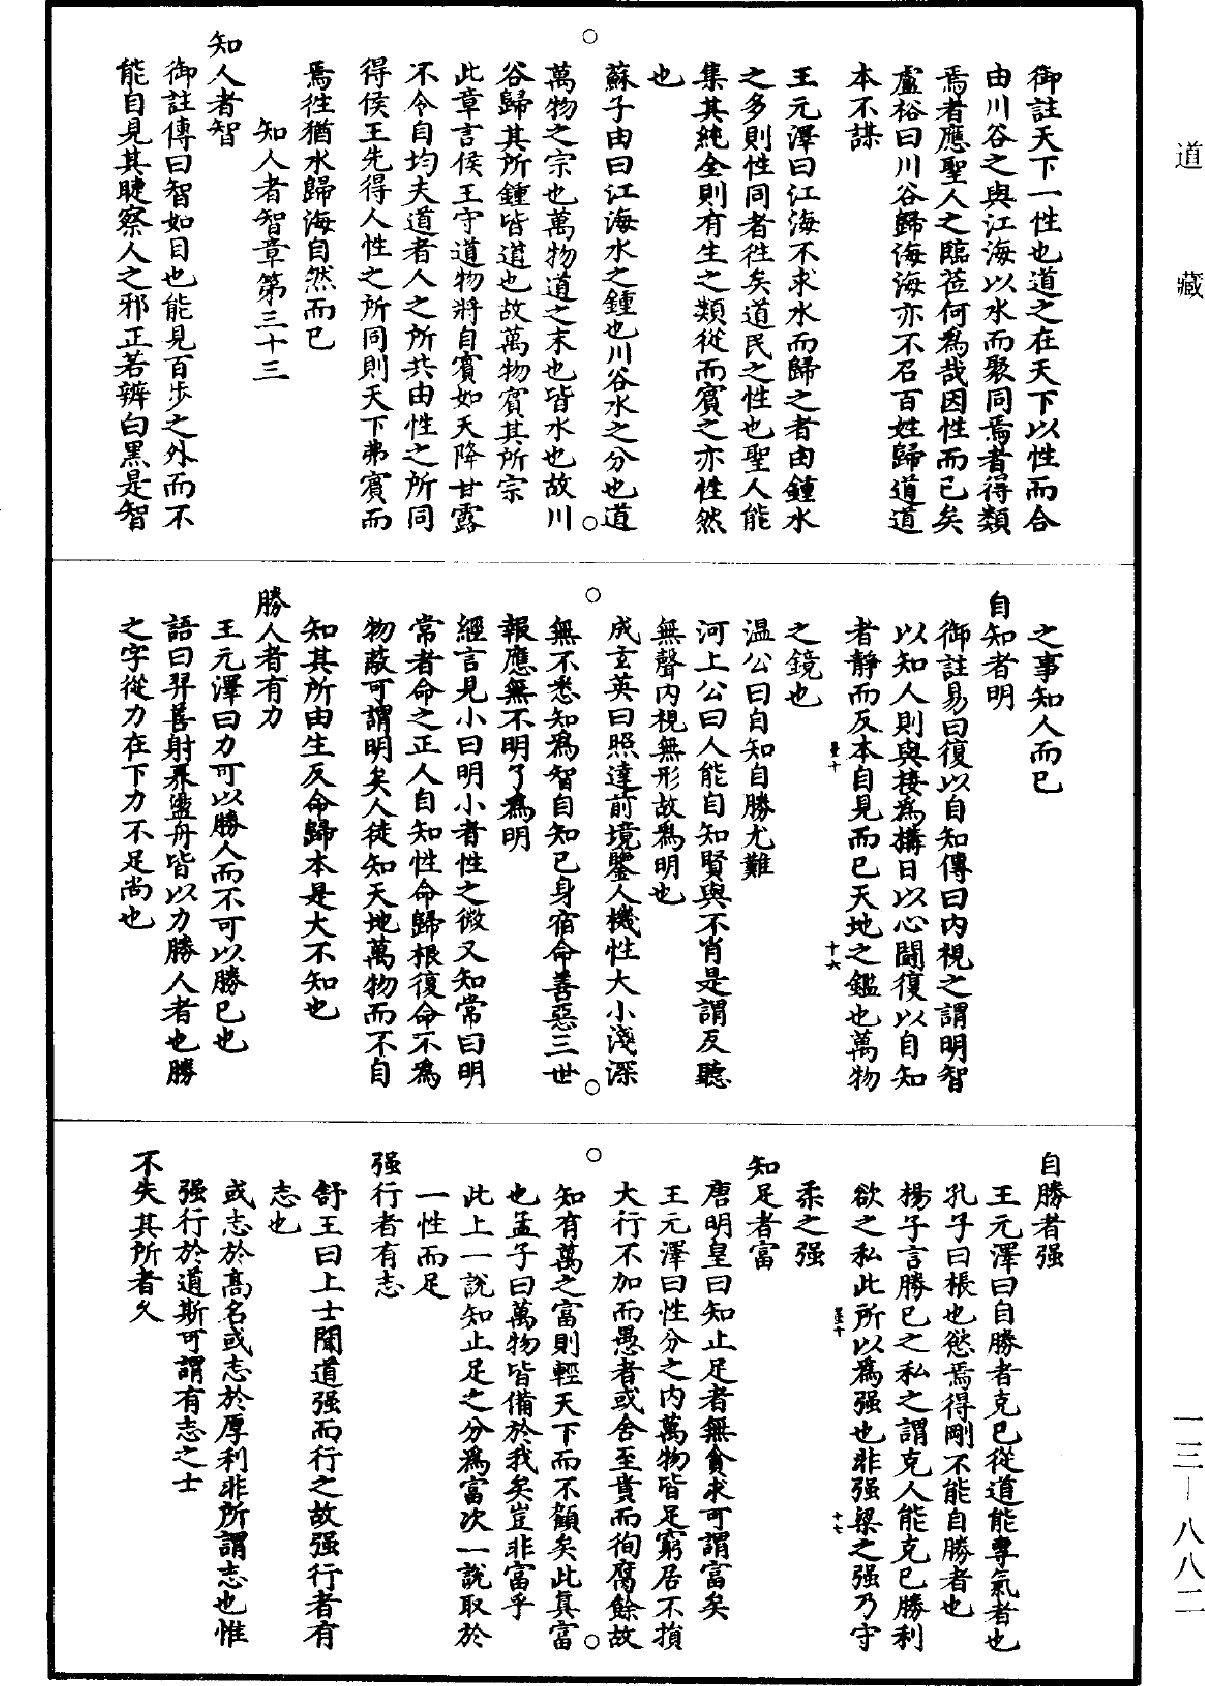 道藏
御註天下一性也道之在天下以性而合
由川谷之與江海以水而聚同焉者得類
焉者應聖人之臨莅何爲哉因性而已矣
盧裕曰川谷歸海海亦不召百姓歸道道
本不謀
王元澤曰江海不求水而歸之者由鍾水
之多則性同者徃矣道民之性也聖人能
集其純全則有生之類從而賓之亦性然
也
蘇子由曰江海水之鍾也川谷水之分也道
萬物之宗也萬物道之末也皆水也故川
谷歸其所鍾皆道也故萬物賓其所宗
此章言侯王守道物將自賓如天降甘露
不令自均夫道者人之所共由性之所同
得侯王先得人性之所同則天下弗賓而
焉徃猶水歸海自然而已
知人者智章第三十三
知人者智
御註傳曰智如目也能見百步之外而不
能自見其睫察人之邪正若辨白黑是智
之事知人而已
自知者明
御註易曰復以自知傳曰内視之謂明智
以知人則與接爲構日以心鬪復以自知
者靜而反本自見而已天地之鑑也萬物
十六
之鏡也
温公曰自知自勝尤難
河上公曰人能自知賢與不肖是謂反聽
無聲内視無形故爲明也
成玄英曰照達前境鑒人機性大小淺深
無不悉知爲智自知已身宿命善惡三世
報應無不明了爲明
經言見小曰明小者性之微又知常曰明
常者命之正人自知性命歸根復命不爲
物蔽可謂明矣人徒知天地萬物而不自
知其所由生反命歸本是大不知也
勝人者有力
王元澤曰力可以勝人而不可以勝已也
語曰羿善射奡盪舟皆以力勝人者也勝
之字從力在下力不足尚也
自勝者强
王元澤曰自勝者克已從道能專氣者也
孔子曰棖也慾焉得剛不能自勝者也
楊子言勝已之私之謂克人能克已勝利
欲之私此所以爲强也非强梁之强乃守
十七
柔之强
知足者富
唐明皇曰知止足者無貪求可謂富矣
王元澤曰性分之内萬物皆足窮居不損
大行不加而愚者或舍至貴而徇腐餘故
知有萬之富則輕天下而不顧矣此真富
也孟子曰萬物皆備於我矣豈非富乎
此上一說知止足之分爲富次一說取於
一性而足
强行者有志
舒王曰上士聞道强而行之故强行者有
志也
或志於高名或志於厚利非所謂志也惟
强行於道斯可謂有志之士
不失其所者久
一三—八八二